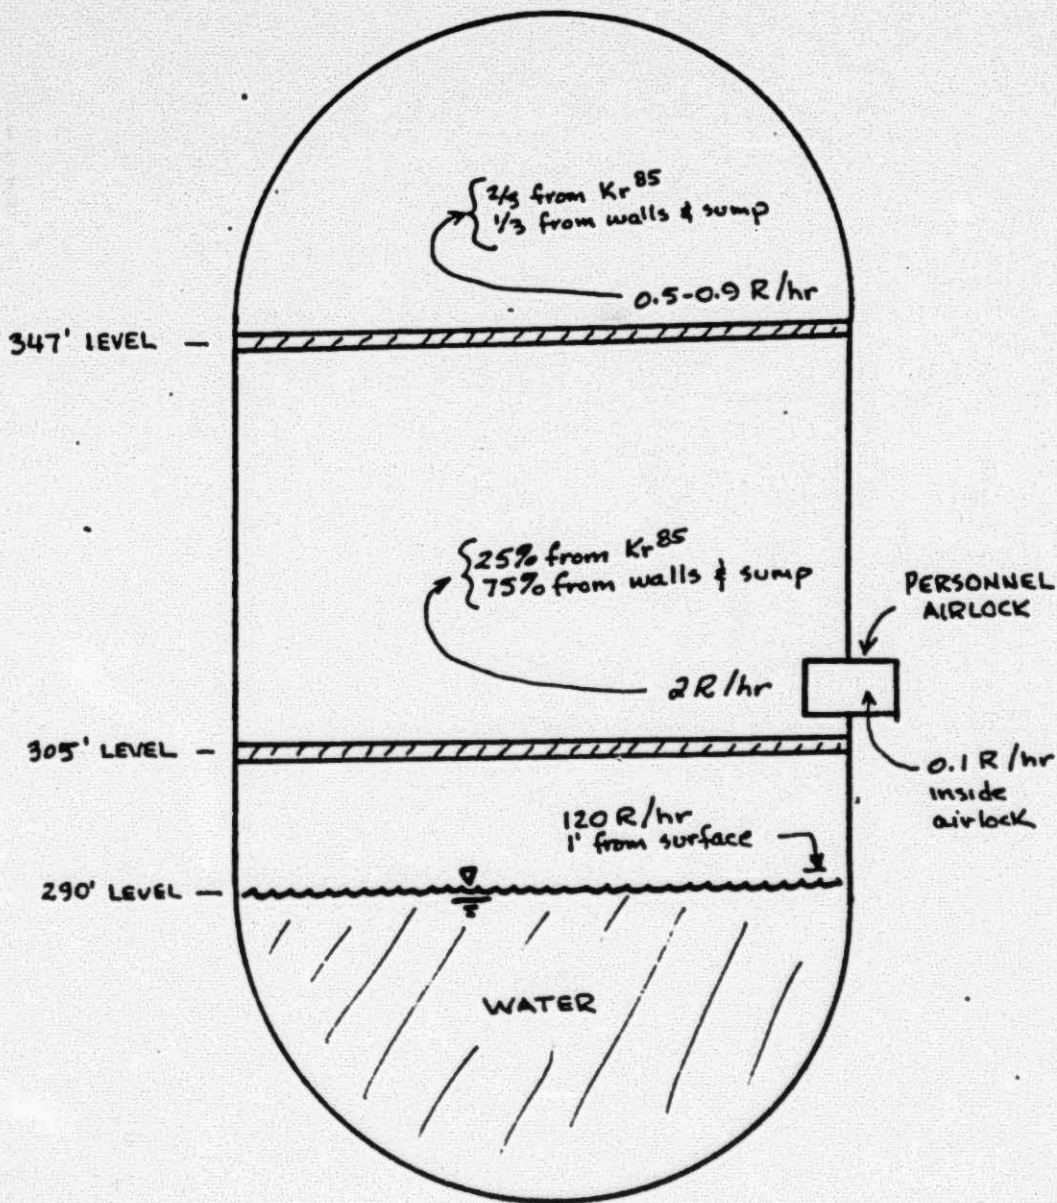 2/3 from Kr85
1/3 from walls & sump
0.5-0.9 R/hr
347' LEVEL
25% from Kr85
75% from walls & sump
PERSONNEL
AIRLOCK
2 R/hr
305' LEVEL
0.1 R/hr
inside
airlock
120 R/hr
1' from surface
290' LEVEL
WATER